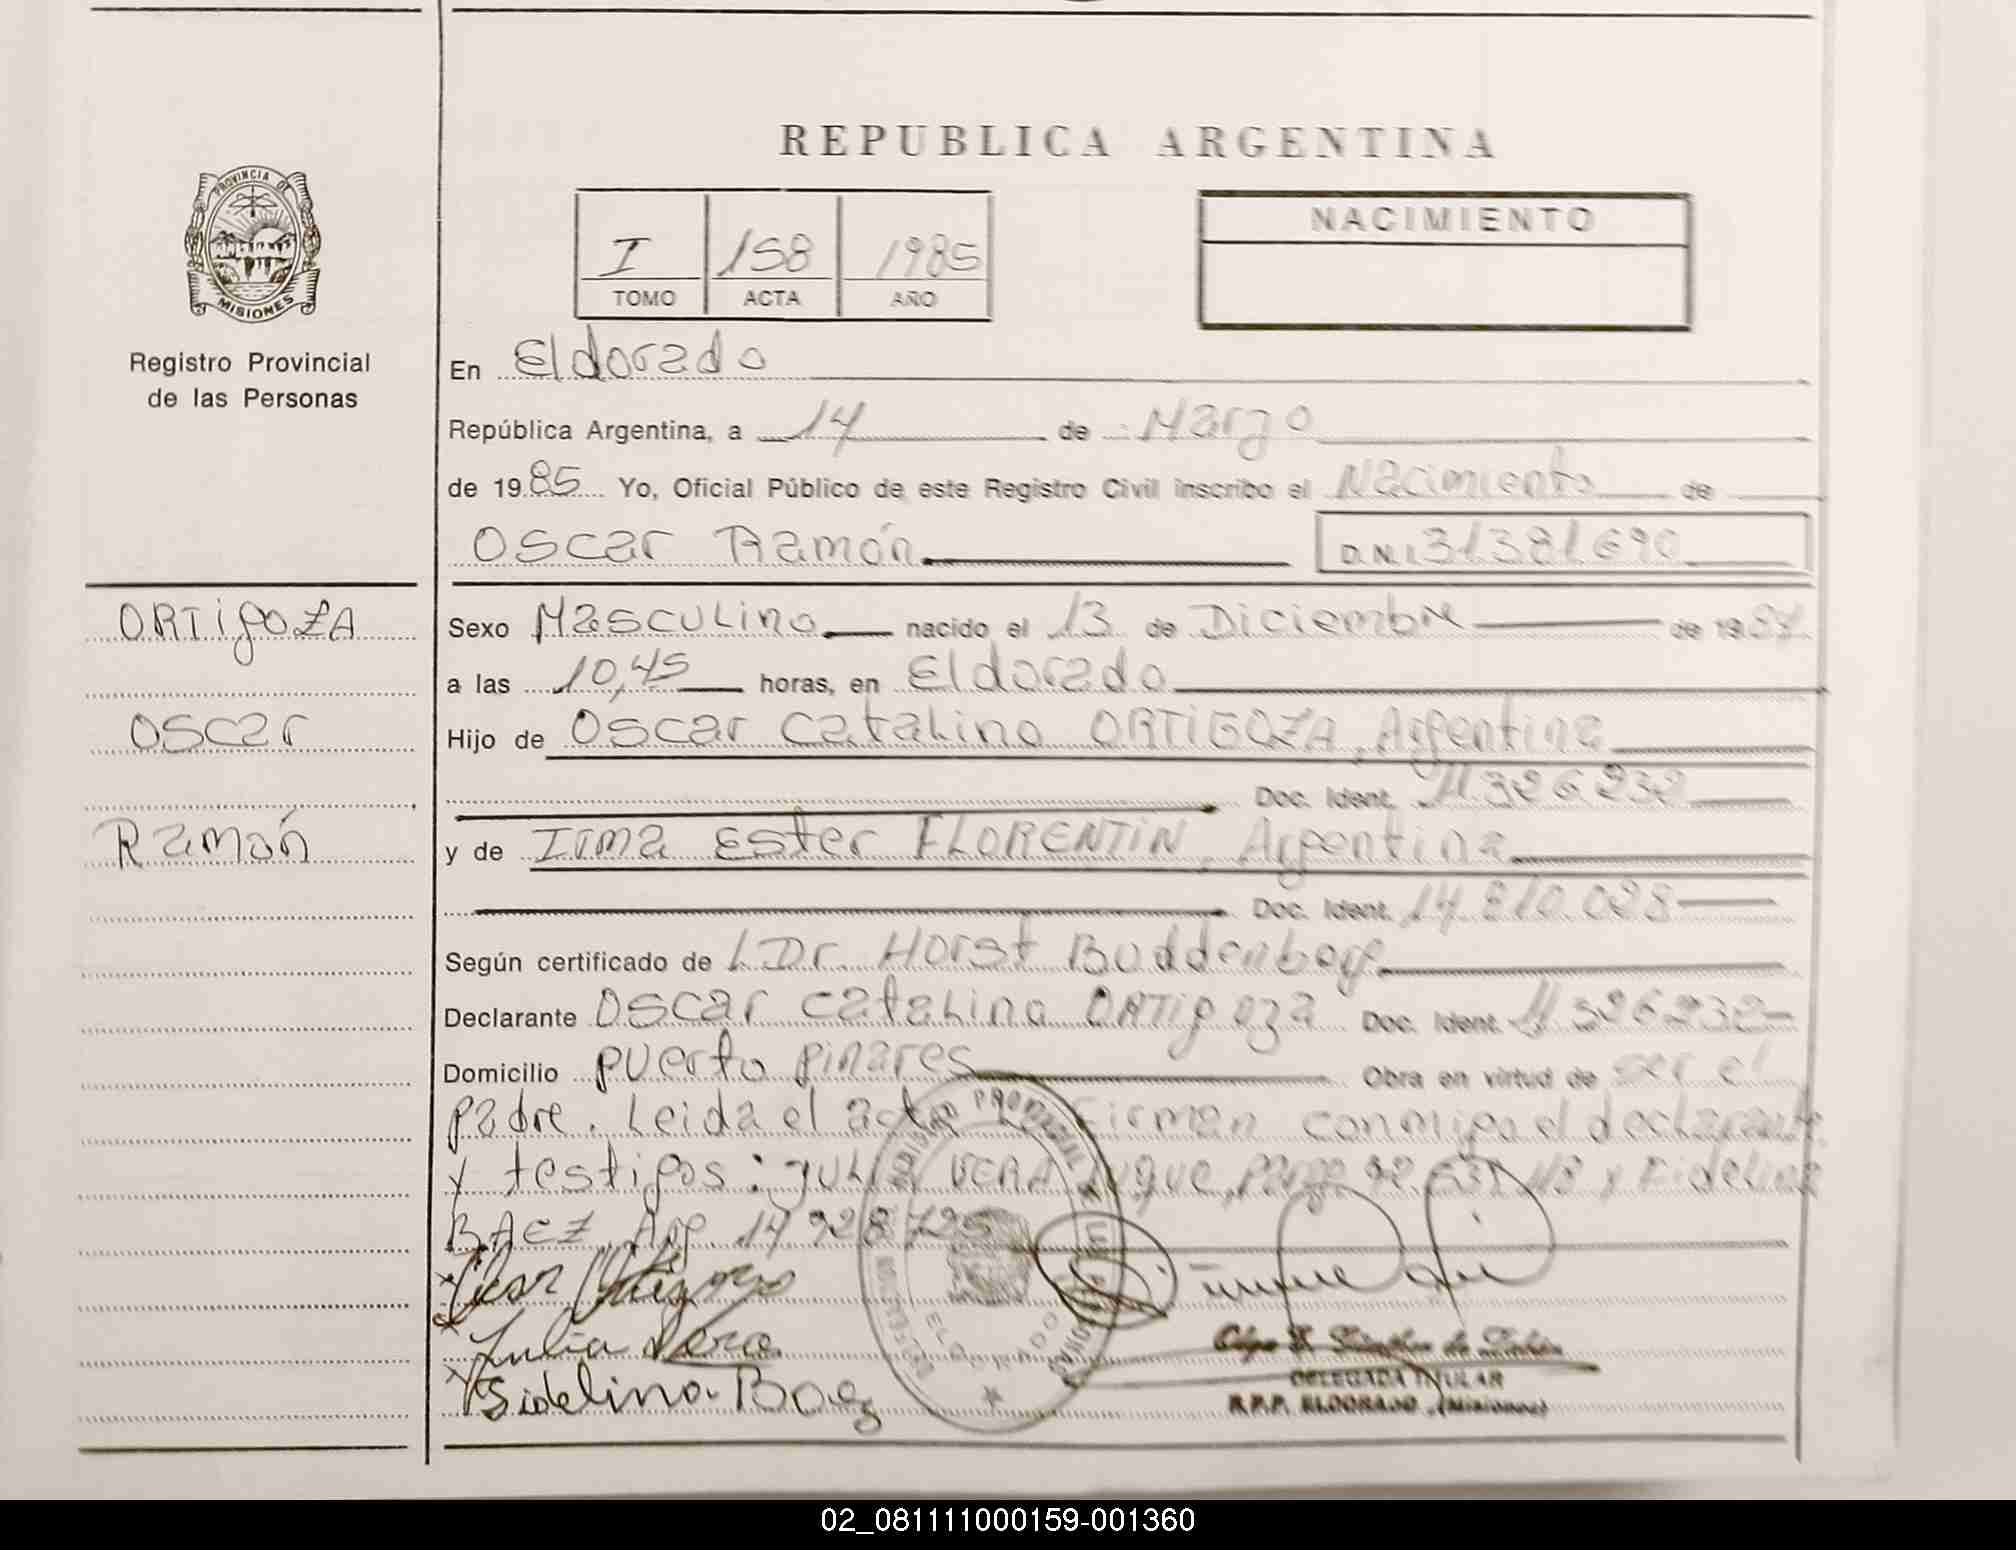 REPUBLICA ARGENTINA
PROVINCIA DE
MISIONES
Registro Provincial
de las Personas
I 158 1985
TOMO ACTA AÑO
NACIMIENTO
En Eldorado
República Argentina, a 14 de Marzo
de 1985 Yo, Oficial Público de este Registro Civil inscribo el Nacimiento de
Oscar Ramón D.N.I 31.381.690
ORTigoZA
Oscar
Ramón
Sexo Masculino nacido el 13 de Diciembre de 1984
a las 10,45 horas, en Eldorado
Hijo de Oscar Catalino ORTIGOZA, Argentina
Doc. Ident. 11.326.232
y de Irma Ester FLORENTIN, Argentina
Doc. Ident. 14.810.028
Según certificado de l Dr. Horst Buddenberg
Declarante Oscar Catalino ORTigoza Doc. Ident. 11.326.232
Domicilio puerto pinares Obra en virtud de ser el
padre. Leida el acta firman conmigo el declarante
y testigos: Julia VERA Luque, y Fidelina
BAEZ, Arg. 14.928.725
Julia Vera
Fidelina Baez
ELDORADO
DELEGADA TITULAR
R.P.P. ELDORADO (Misiones)
02_081111000159-001360